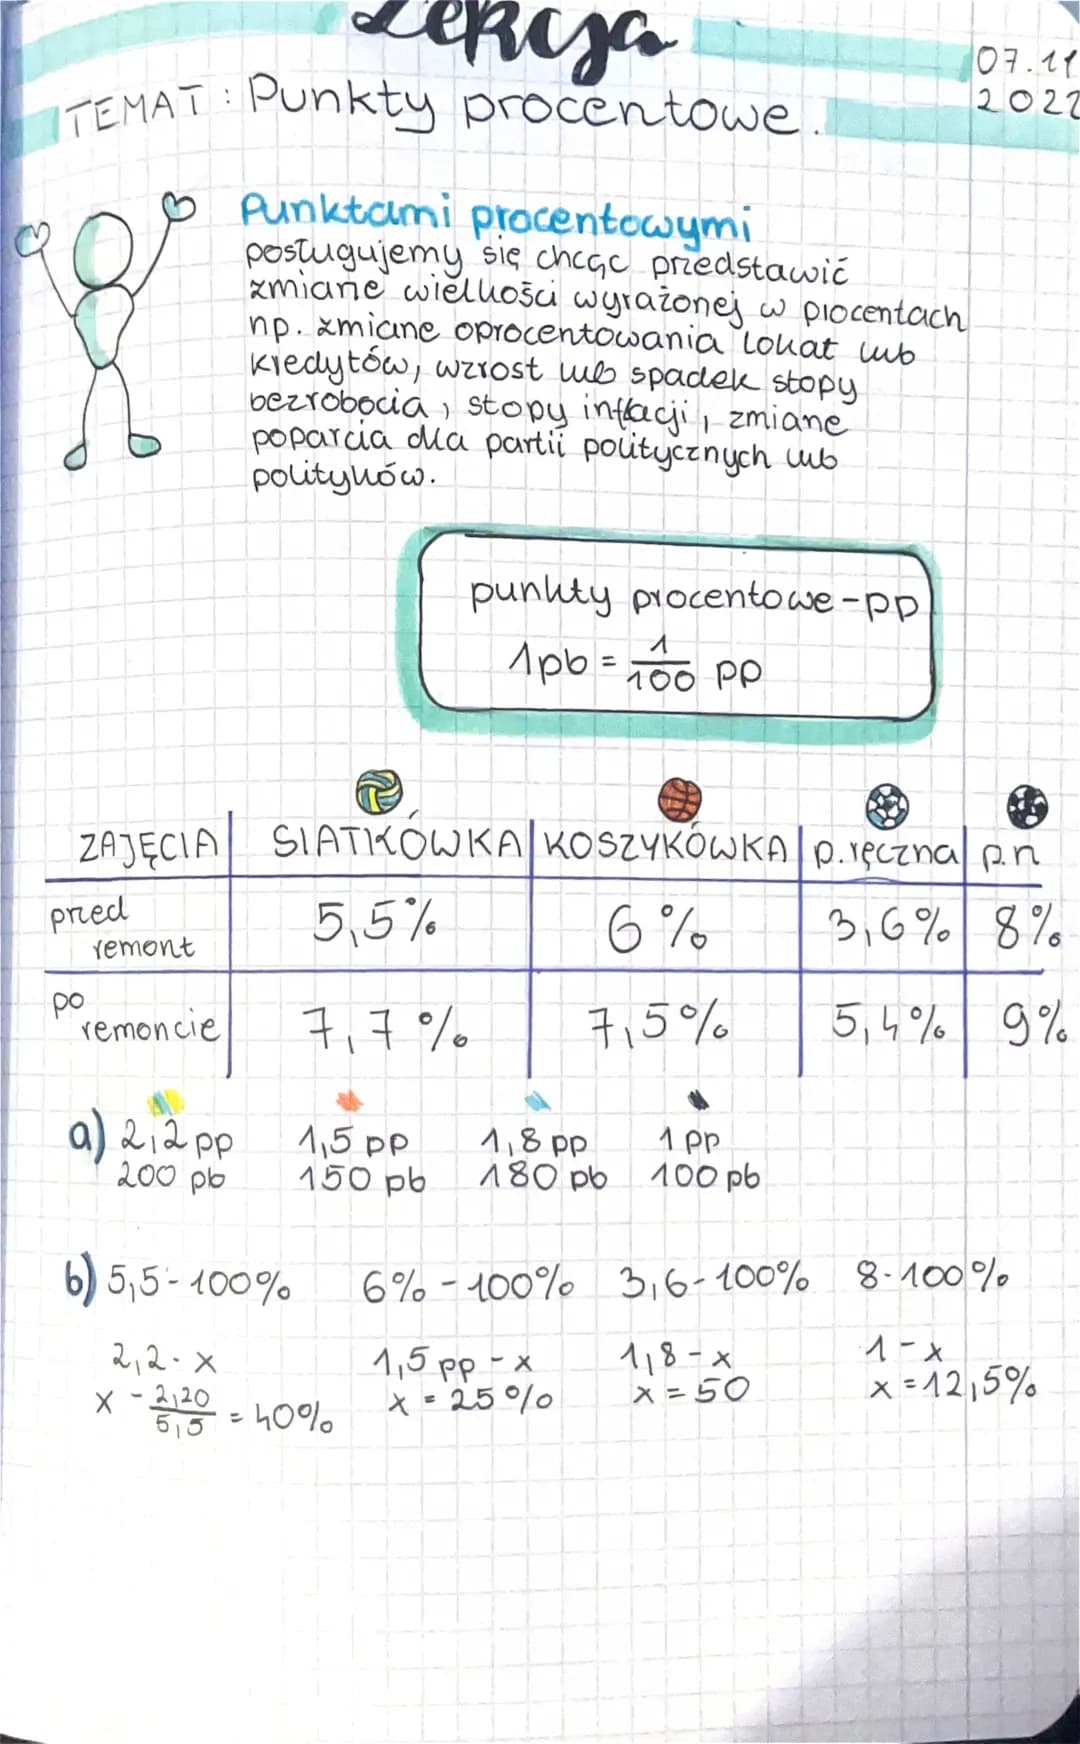 Lekcja
07.11
2022
TEMAT: Punkty procentowe.
Punktami procentowymi
posługujemy się chcąc przedstawić
zmianę wielkości wyrażonej w procentach
np. zmianę oprocentowania lokat lub
kredytów, wzrost lub spadek stopy
bezrobocia, stopy inflacji, zmianę
poparcia dla partii politycznych lub
polityków.
punkty procentowe - pp
1pb = 1/100 pp
ZAJĘCIA SIATKÓWKA KOSZYKÓWKA p.ręczna p.n
przed remont 5,5% 6% 3,6% 8%
po remoncie 7,7% 7,5% 5,4% 9%
a) 2,2 pp 1,5 pp 1,8 pp 1 pp
200 pb 150 pb 180 pb 100 pb
b) 5,5 - 100% 6% - 100% 3,6 - 100% 8 - 100%
2,2 - x 1,5 pp - x 1,8 - x 1 - x
x - 2,20/5,5 = 40% x = 25% x = 50 x = 12,5%